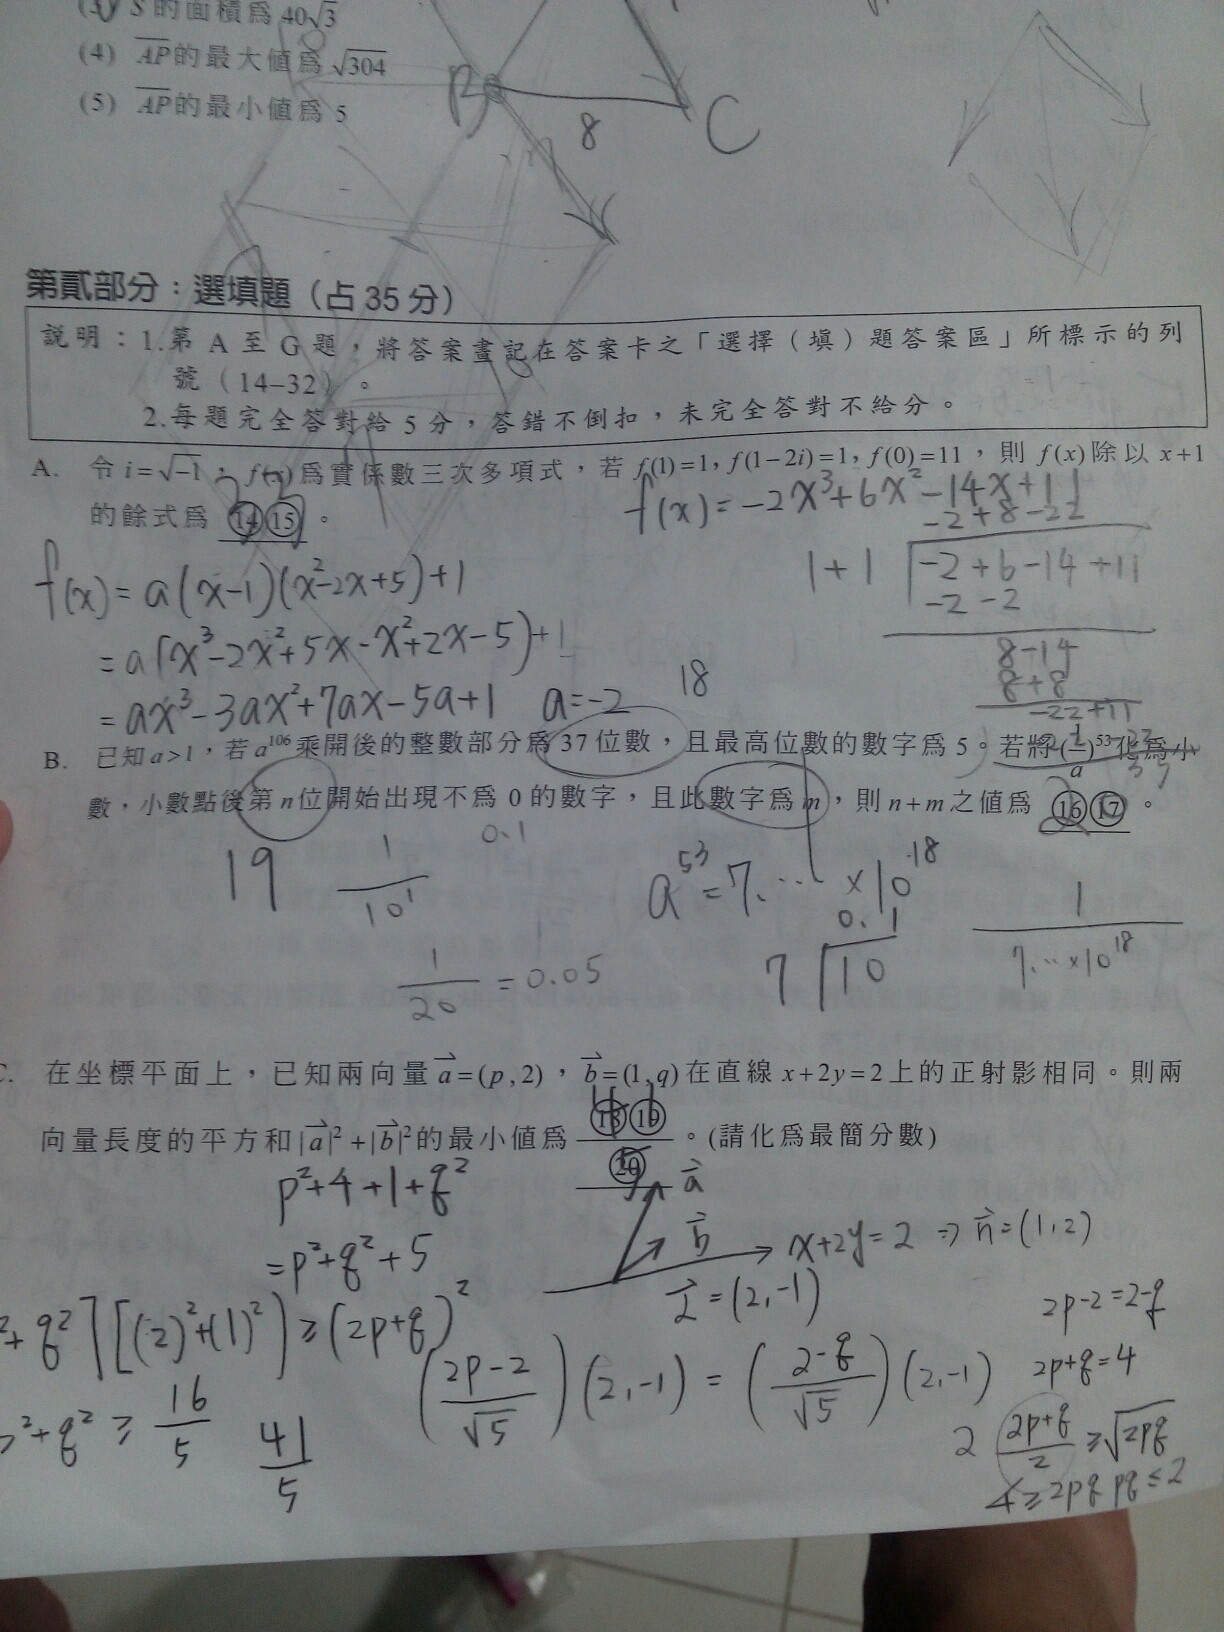 S 的面積爲 40√3
(4) AP的最大値爲 √304
(5) AP的最小値爲 5
B
8
C
第貳部分：選填題（占 35 分）
說明：1.第 A 至 G 題，將答案畫記在答案卡之「選擇（填）題答案區」所標示的列
號（14–32）。
2.每題完全答對給 5 分，答錯不倒扣，未完全答對不給分。
A. 令 i=√-1，f(x)爲實係數三次多項式，若 f(1)=1, f(1-2i)=1, f(0)=11，則 f(x)除以 x+1
的餘式爲 ⑭⑮。
f(x)=-2x³+6x²-14x+11
-2+8-22
1+1 -2+6-14+11
-2-2
8-14
8+8
-22+11
f(x)=a(x-1)(x²-2x+5)+1
=a(x³-2x²+5x-x²+2x-5)+1
=ax³-3ax²+7ax-5a+1 a=-2
18
B. 已知 a>1，若 a¹⁰⁶ 乘開後的整數部分爲 37 位數，且最高位數的數字爲 5。若將(1/a)⁵³化爲小
數，小數點後第 n位開始出現不爲 0 的數字，且此數字爲 m，則 n+m 之值爲 ⑯⑰。
19
1/10¹
0.1
a⁵³=7.… ×10¹⁸
0.1
7 10
1/7.…×10¹⁸
1/20 = 0.05
C. 在坐標平面上，已知兩向量 a=(p,2)，b=(1,q)在直線 x+2y=2 上的正射影相同。則兩
向量長度的平方和|a|²+|b|²的最小值爲 ⑱⑲/⑳。(請化爲最簡分數)
p²+4+1+q²
=p²+q²+5
a
b
x+2y=2 ⇒ n=(1,2)
l=(2,-1)
+q²][(2)²+(1)²]≥(2p+q)²
²+q² ≥ 16/5
41/5
((2p-2)/√5)(2,-1) = ((2-q)/√5)(2,-1)
2p-2=2-q
2p+q=4
2 (2p+q)/2 ≥√2pq
4≥2pq pq≤2